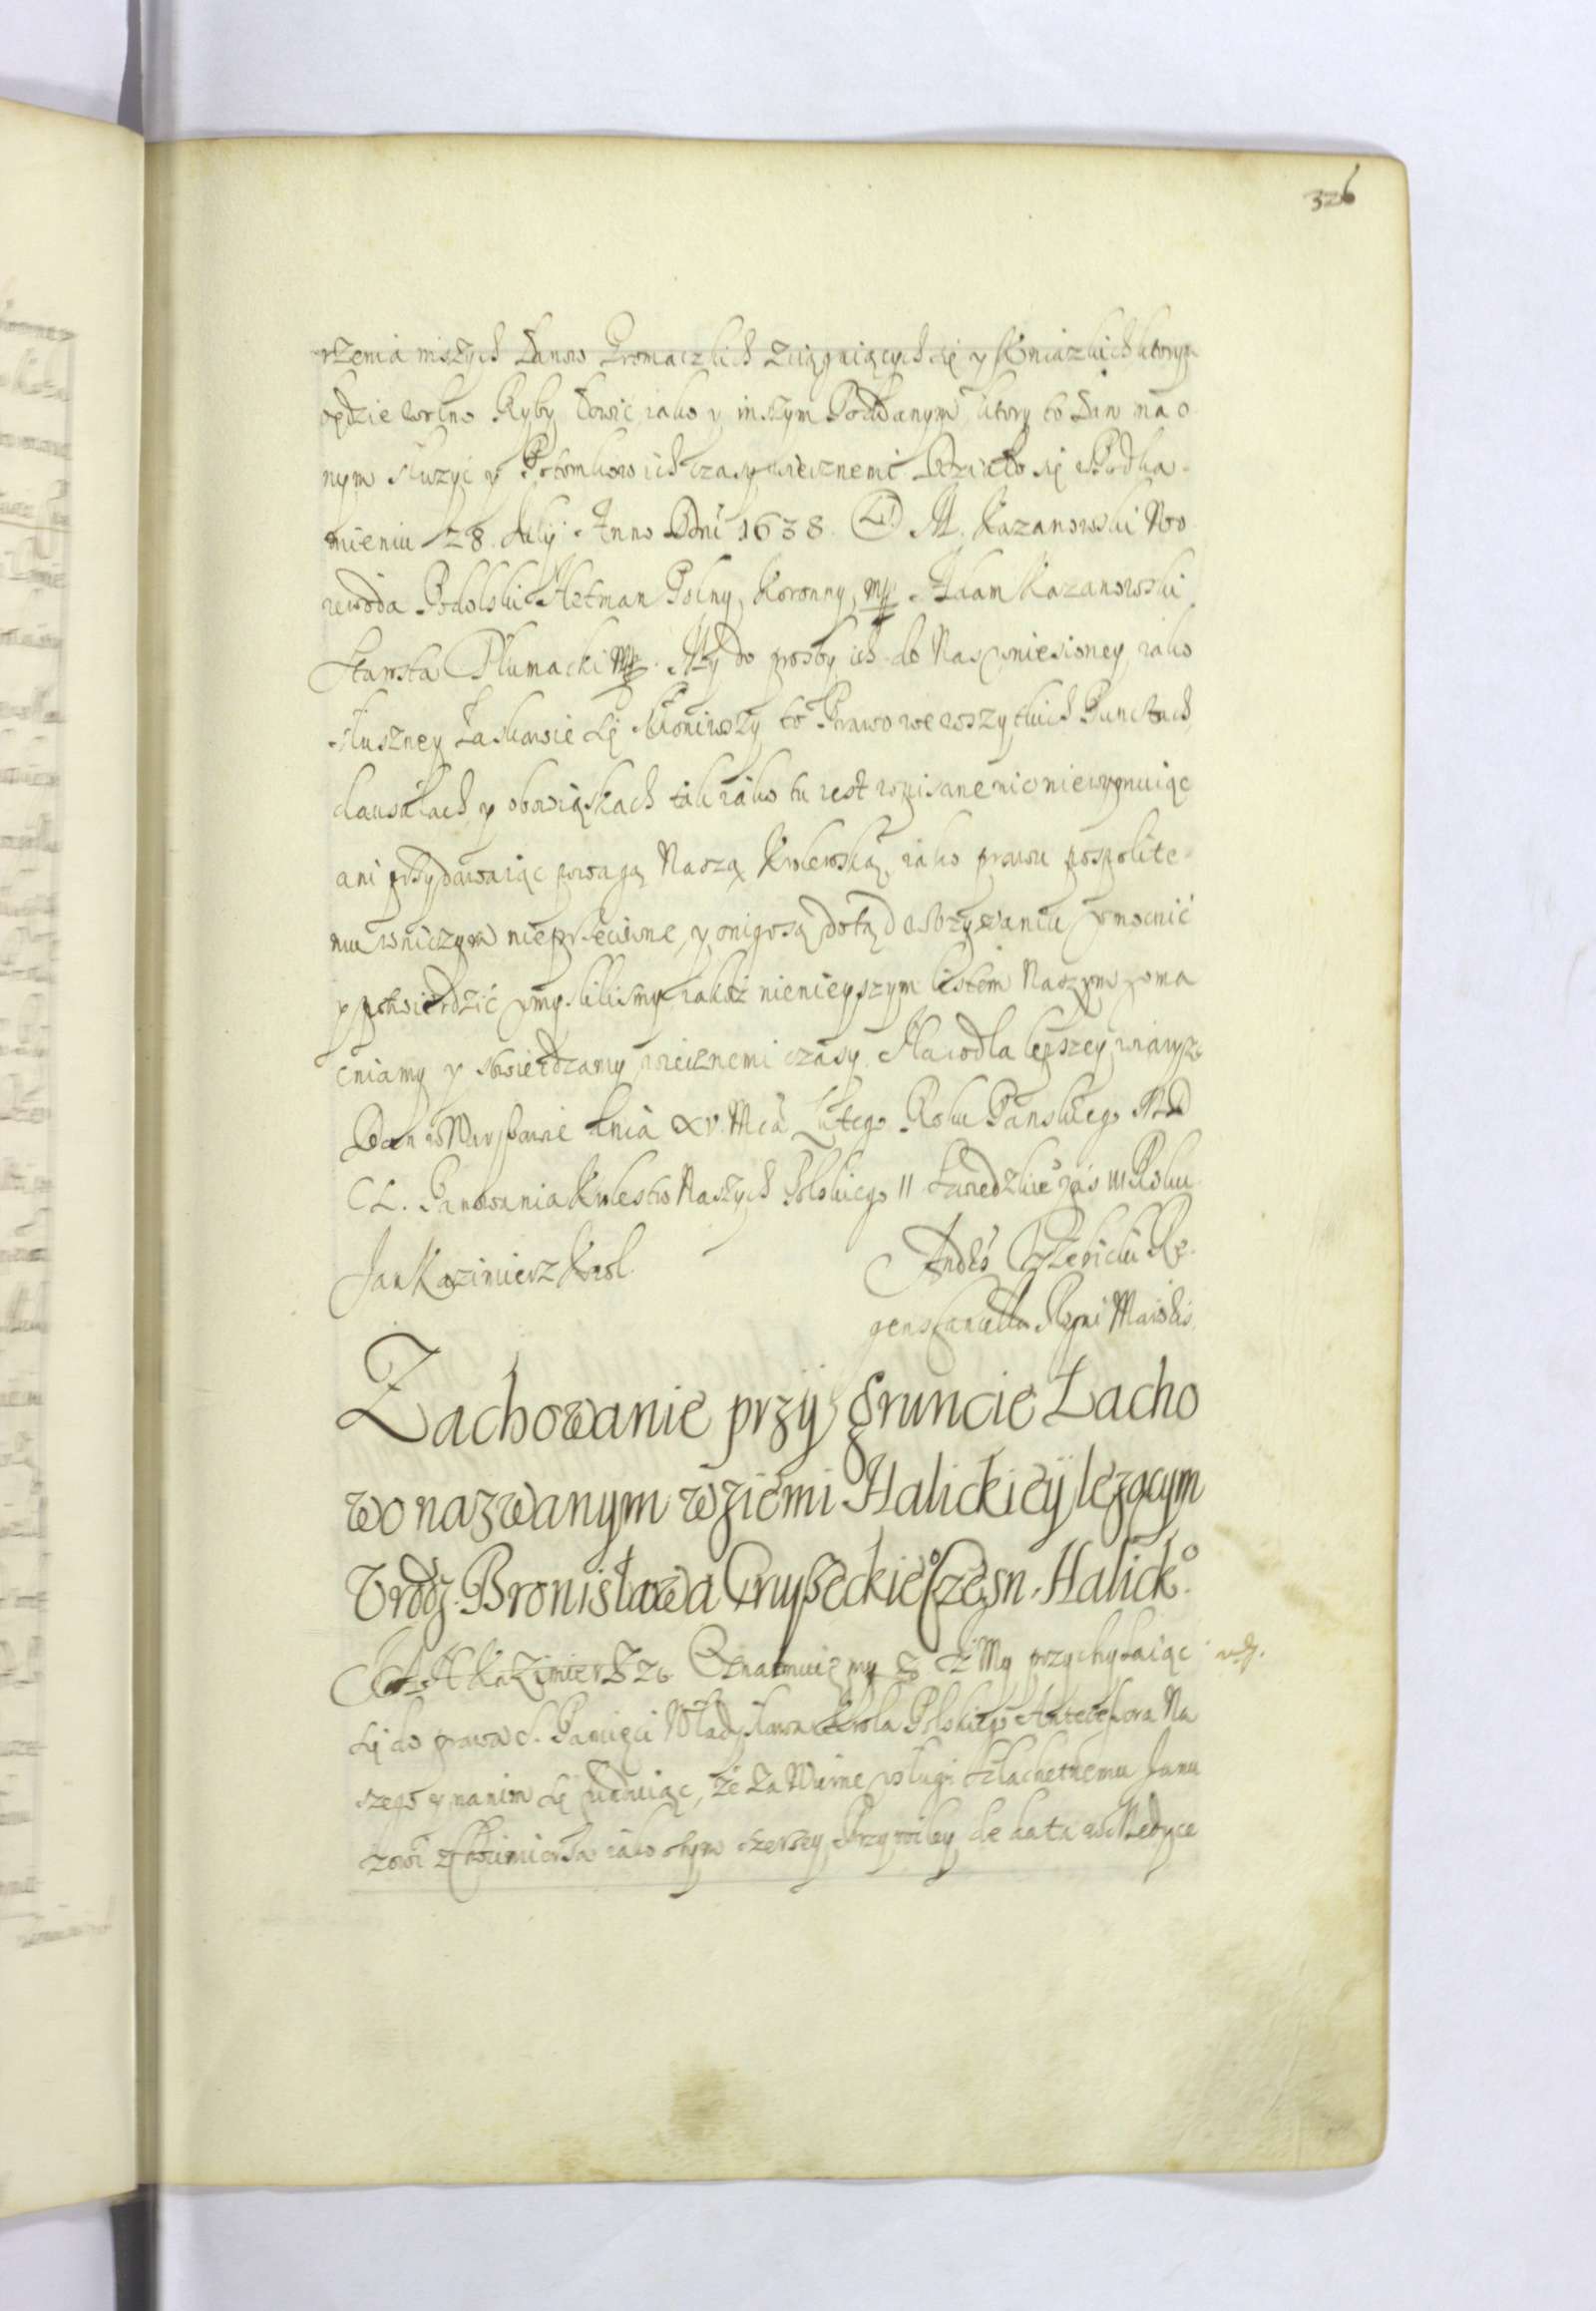 326
rzenia niszych Łanow Promaczlich zciągniących się y Kniazkich ktorym
będzie wolno Ryby łowić iako y inszym Poddanym, ktory to Łan ma o
nym słuzyć y Potomkow ich czasy wiecznemi Działo się w Podka-
mieniu 28 July Anno Dni 1638. M. Kazanowski Wo
iewoda Podolski Hetman Polny Koronny mp Adam Kazanowski
Starosta Tłumacki mp. My do prosby ich do Nas wniesioney iako
słuszney Łaskawie się skłoniwszy to Prawo we wszytkich Punctach
clausulach y obowiąskach tak iako tu iest wpisane nic nie wymuiąc
ani przydawaiąc powagą Naszą Krolewską, iako prawu pospolite-
mu w niczym nieprzeciwne, y oni go są dotąd w uzywaniu zmocnić
y potwierdzić umyslilismy iakoż nienieyszym listem Naszym zma
cniamy y stwierdzamy wiecznemi czasy. Na co dla lepszey wiary
Dan w Warszawie dnia XV Mca Lutego Roku Panskiego MD
CL. Panowania Krolestw Naszych Polskiego II Szwedzkie° zas III Roku
Jan Kazimierz Krol
Regens Cancellariæ Regni Maioris
Zachowanie przÿ Gruncie Lacho
wo nazwanym w ziemi Halickieÿ lezącym
Urodz. Bronisława Hruszeckie° Czesn. Halick°
JAN Kazimierz Oznaimuięmy iz My przychylaiąc
się do prawa S. Pamięci Władysława Krola Polskiego Antecessora Na
szego y na nim się funduiąc, że za Wierne usługi Szlachetnemu Janu
szowi iako o tym szerzey Przywiley de data w Medyce